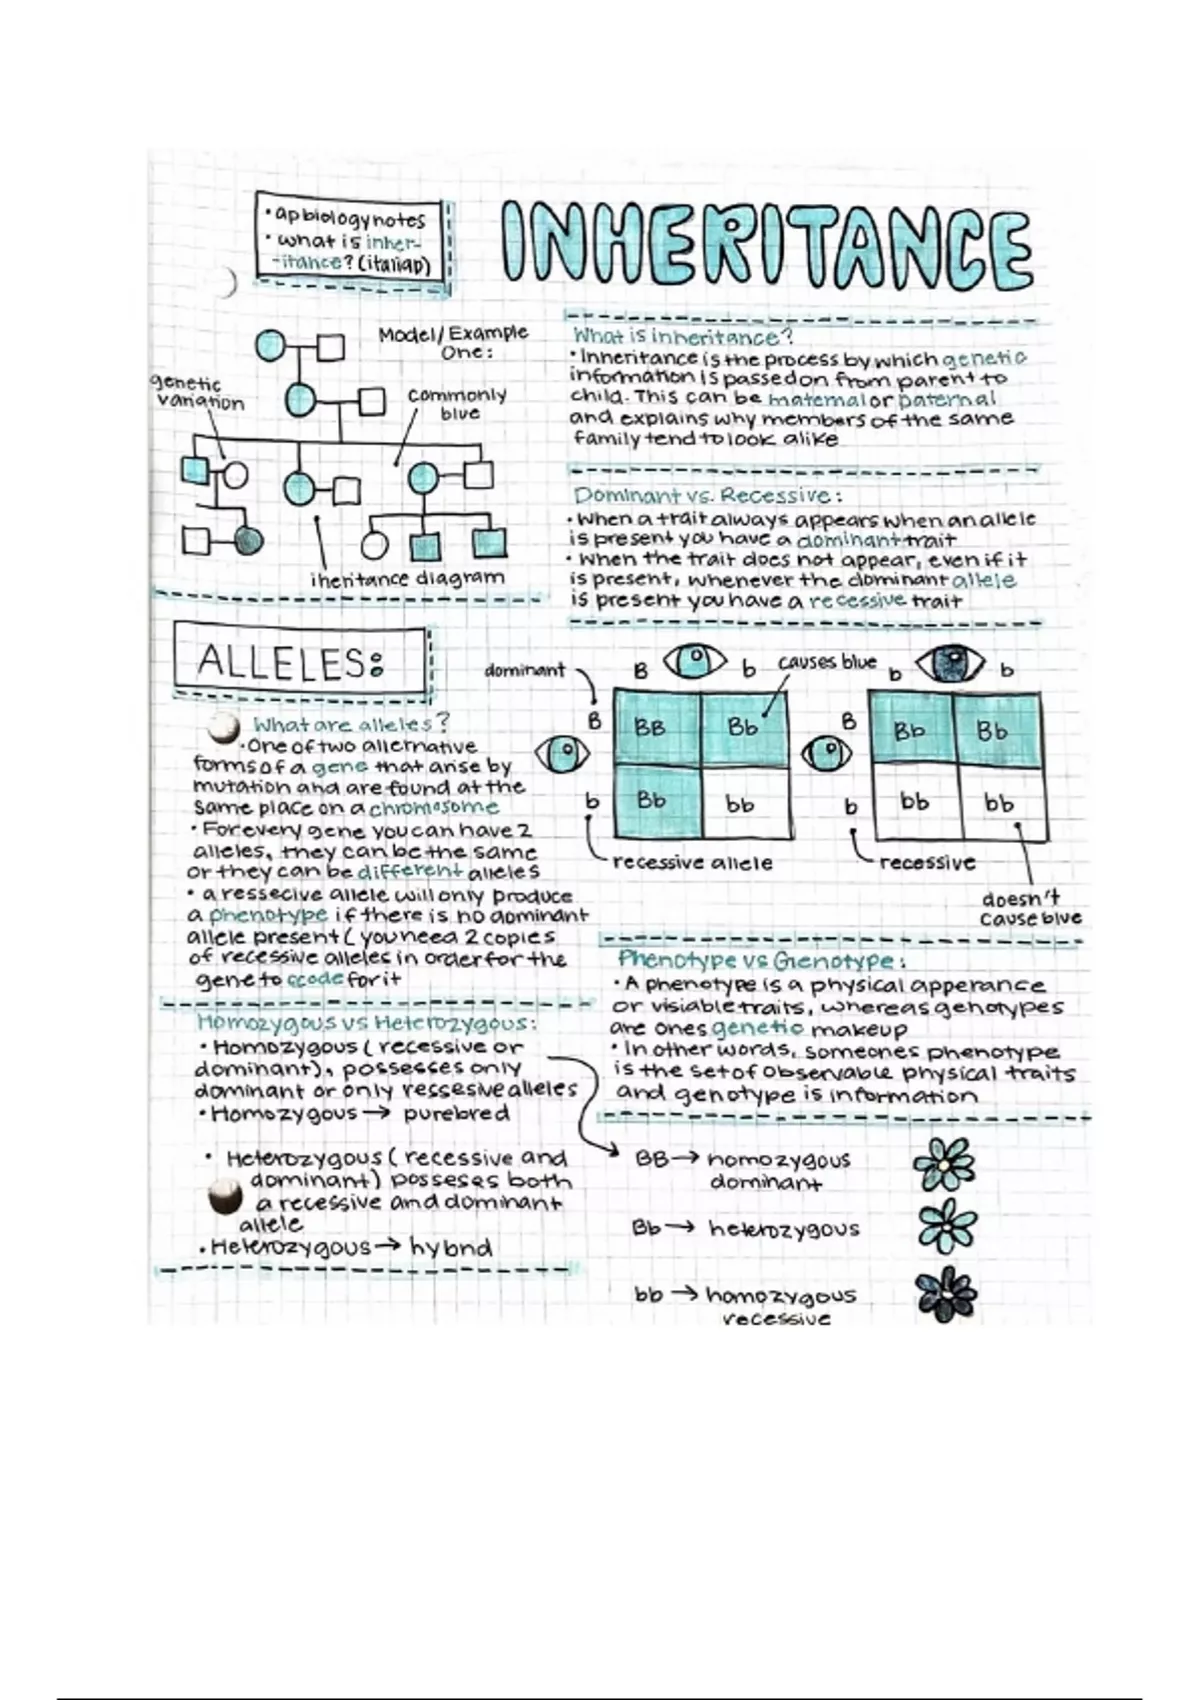 • apbiologynotes
• what is inher-
-itance? (italiap)
INHERITANCE
Model/Example
One:
genetic
variation
commonly
blue
iheritance diagram
What is inheritance?
• Inheritance is the process by which genetic
information is passed on from parent to
child. This can be maternal or paternal
and explains why members of the same
family tend to look alike
Dominant vs. Recessive:
• When a trait always appears when an allele
is present you have a dominant trait
• When the trait does not appear, even if it
is present, whenever the dominant allele
is present you have a recessive trait
ALLELES:
What are alleles?
• One of two alternative
forms of a gene that arise by
mutation and are found at the
same place on a chromosome
• For every gene you can have 2
alleles, they can be the same
or they can be different alleles
• a ressecive allele will only produce
a phenotype if there is no dominant
allele present ( you need 2 copies
of recessive alleles in order for the
gene to ccode for it
dominant
B b
causes blue
B
BB Bb
b
Bb bb
recessive allele
b b
B
Bb Bb
b
bb bb
recessive
doesn't
cause blue
Homozygous vs Heterozygous:
• Homozygous ( recessive or
dominant), possesses only
dominant or only ressesive alleles
• Homozygous → purebred
• Heterozygous ( recessive and
dominant) posseses both
a recessive and dominant
allele
• Heterozygous → hybrid
Phenotype vs Genotype:
• A phenotype is a physical apperance
or visiable traits, whereas genotypes
are ones genetic makeup
• In other words, someones phenotype
is the set of observable physical traits
and genotype is information
BB → homozygous
dominant
Bb → heterozygous
bb → homozygous
recessive